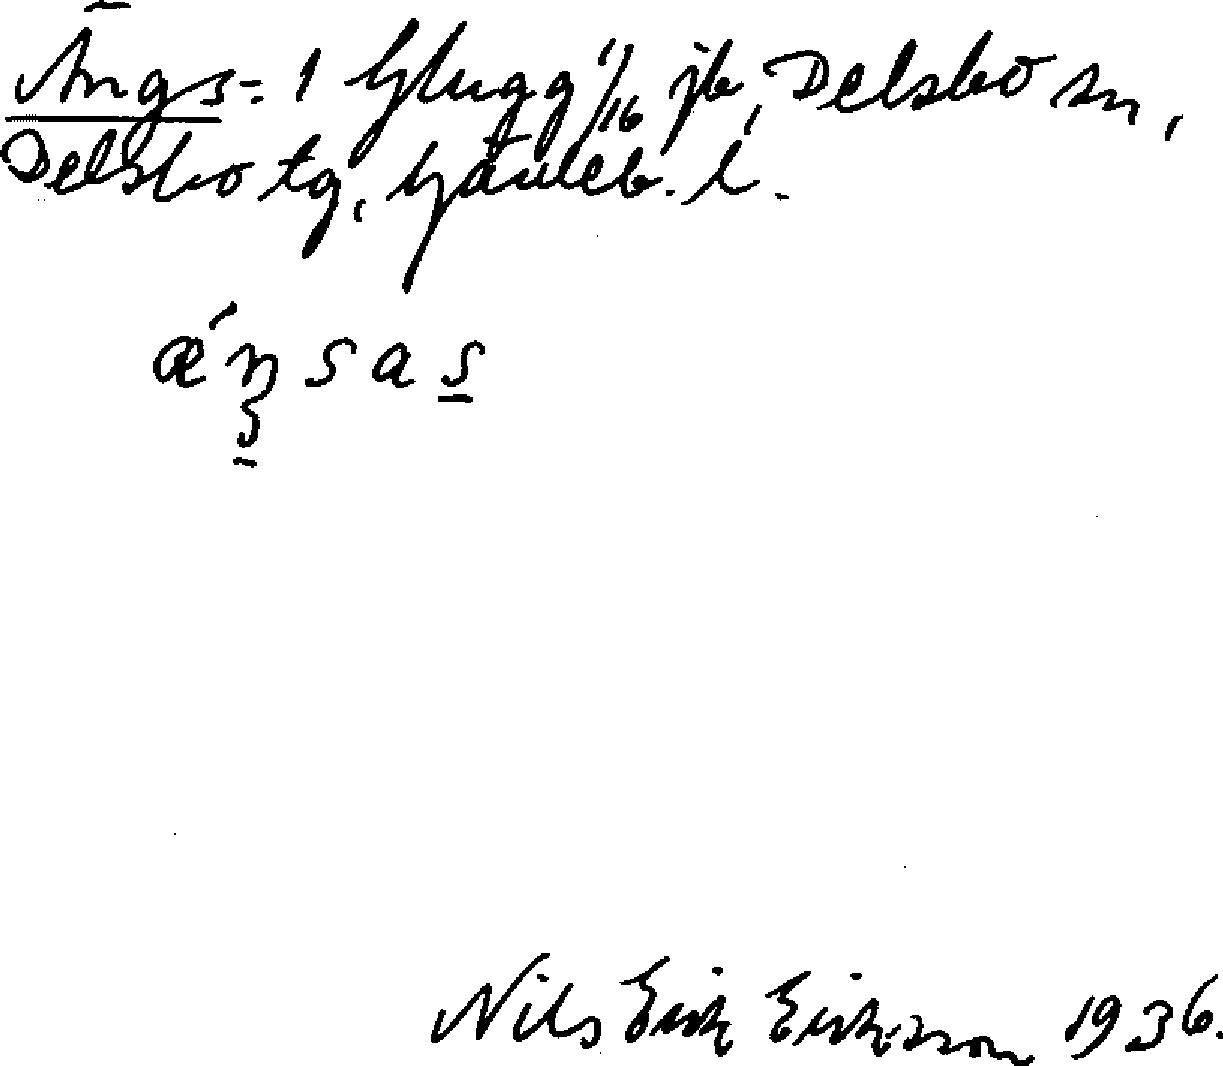 Ängs-: i Glugg 1/16 jb, Delsbo sn,
Delsbo tg, Gävleb. l.
ǽŋsas
Nils Erik Eriksson 1936.